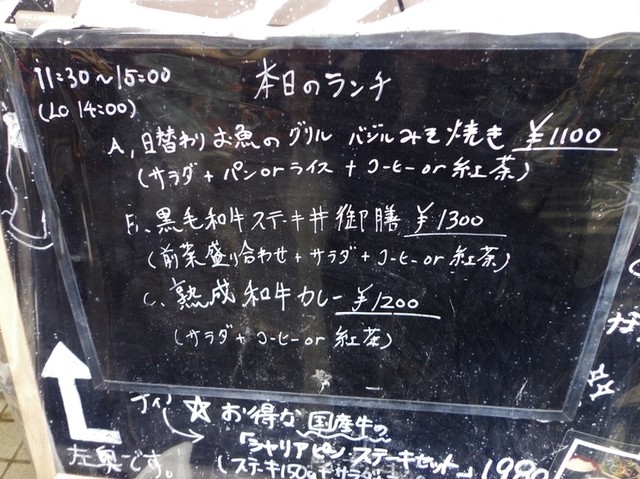 11:30~15:00
本日のランチ
(LO 14:00)
A、日替わりお魚のグリル バジルみそ焼き ¥1100
(サラダ + パン or ライス + コーヒー or 紅茶)
B、黒毛和牛ステーキ丼御膳 ¥1300
(前菜盛り合わせ + サラダ + コーヒー or 紅茶)
C、熟成和牛カレー ¥1200
(サラダ + コーヒー or 紅茶)
☆ お得な国産牛の
「シャリアピンステーキセット」 1980
(ステーキ150g + サラダ
左奥です。